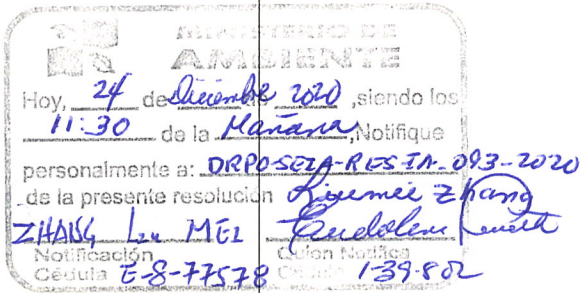 MINISTERIO DE
AMBIENTE
Hoy, 24 de Diciembre 2020, siendo los
11:30 de la Mañana, Notifique
personalmente a: DRPO-SEIA-RES-IA-093-2020
de la presente resolución Liumei Zhang
ZHANG Liu MEI
Notificación Quien Notifica
Cédula E-8-77578 Cédula 1-39-802